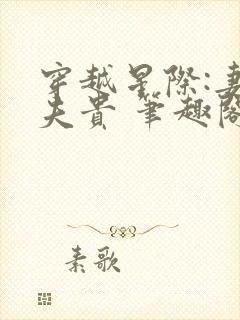 穿越星際:妻
夫貴 筆趣閣
素歌